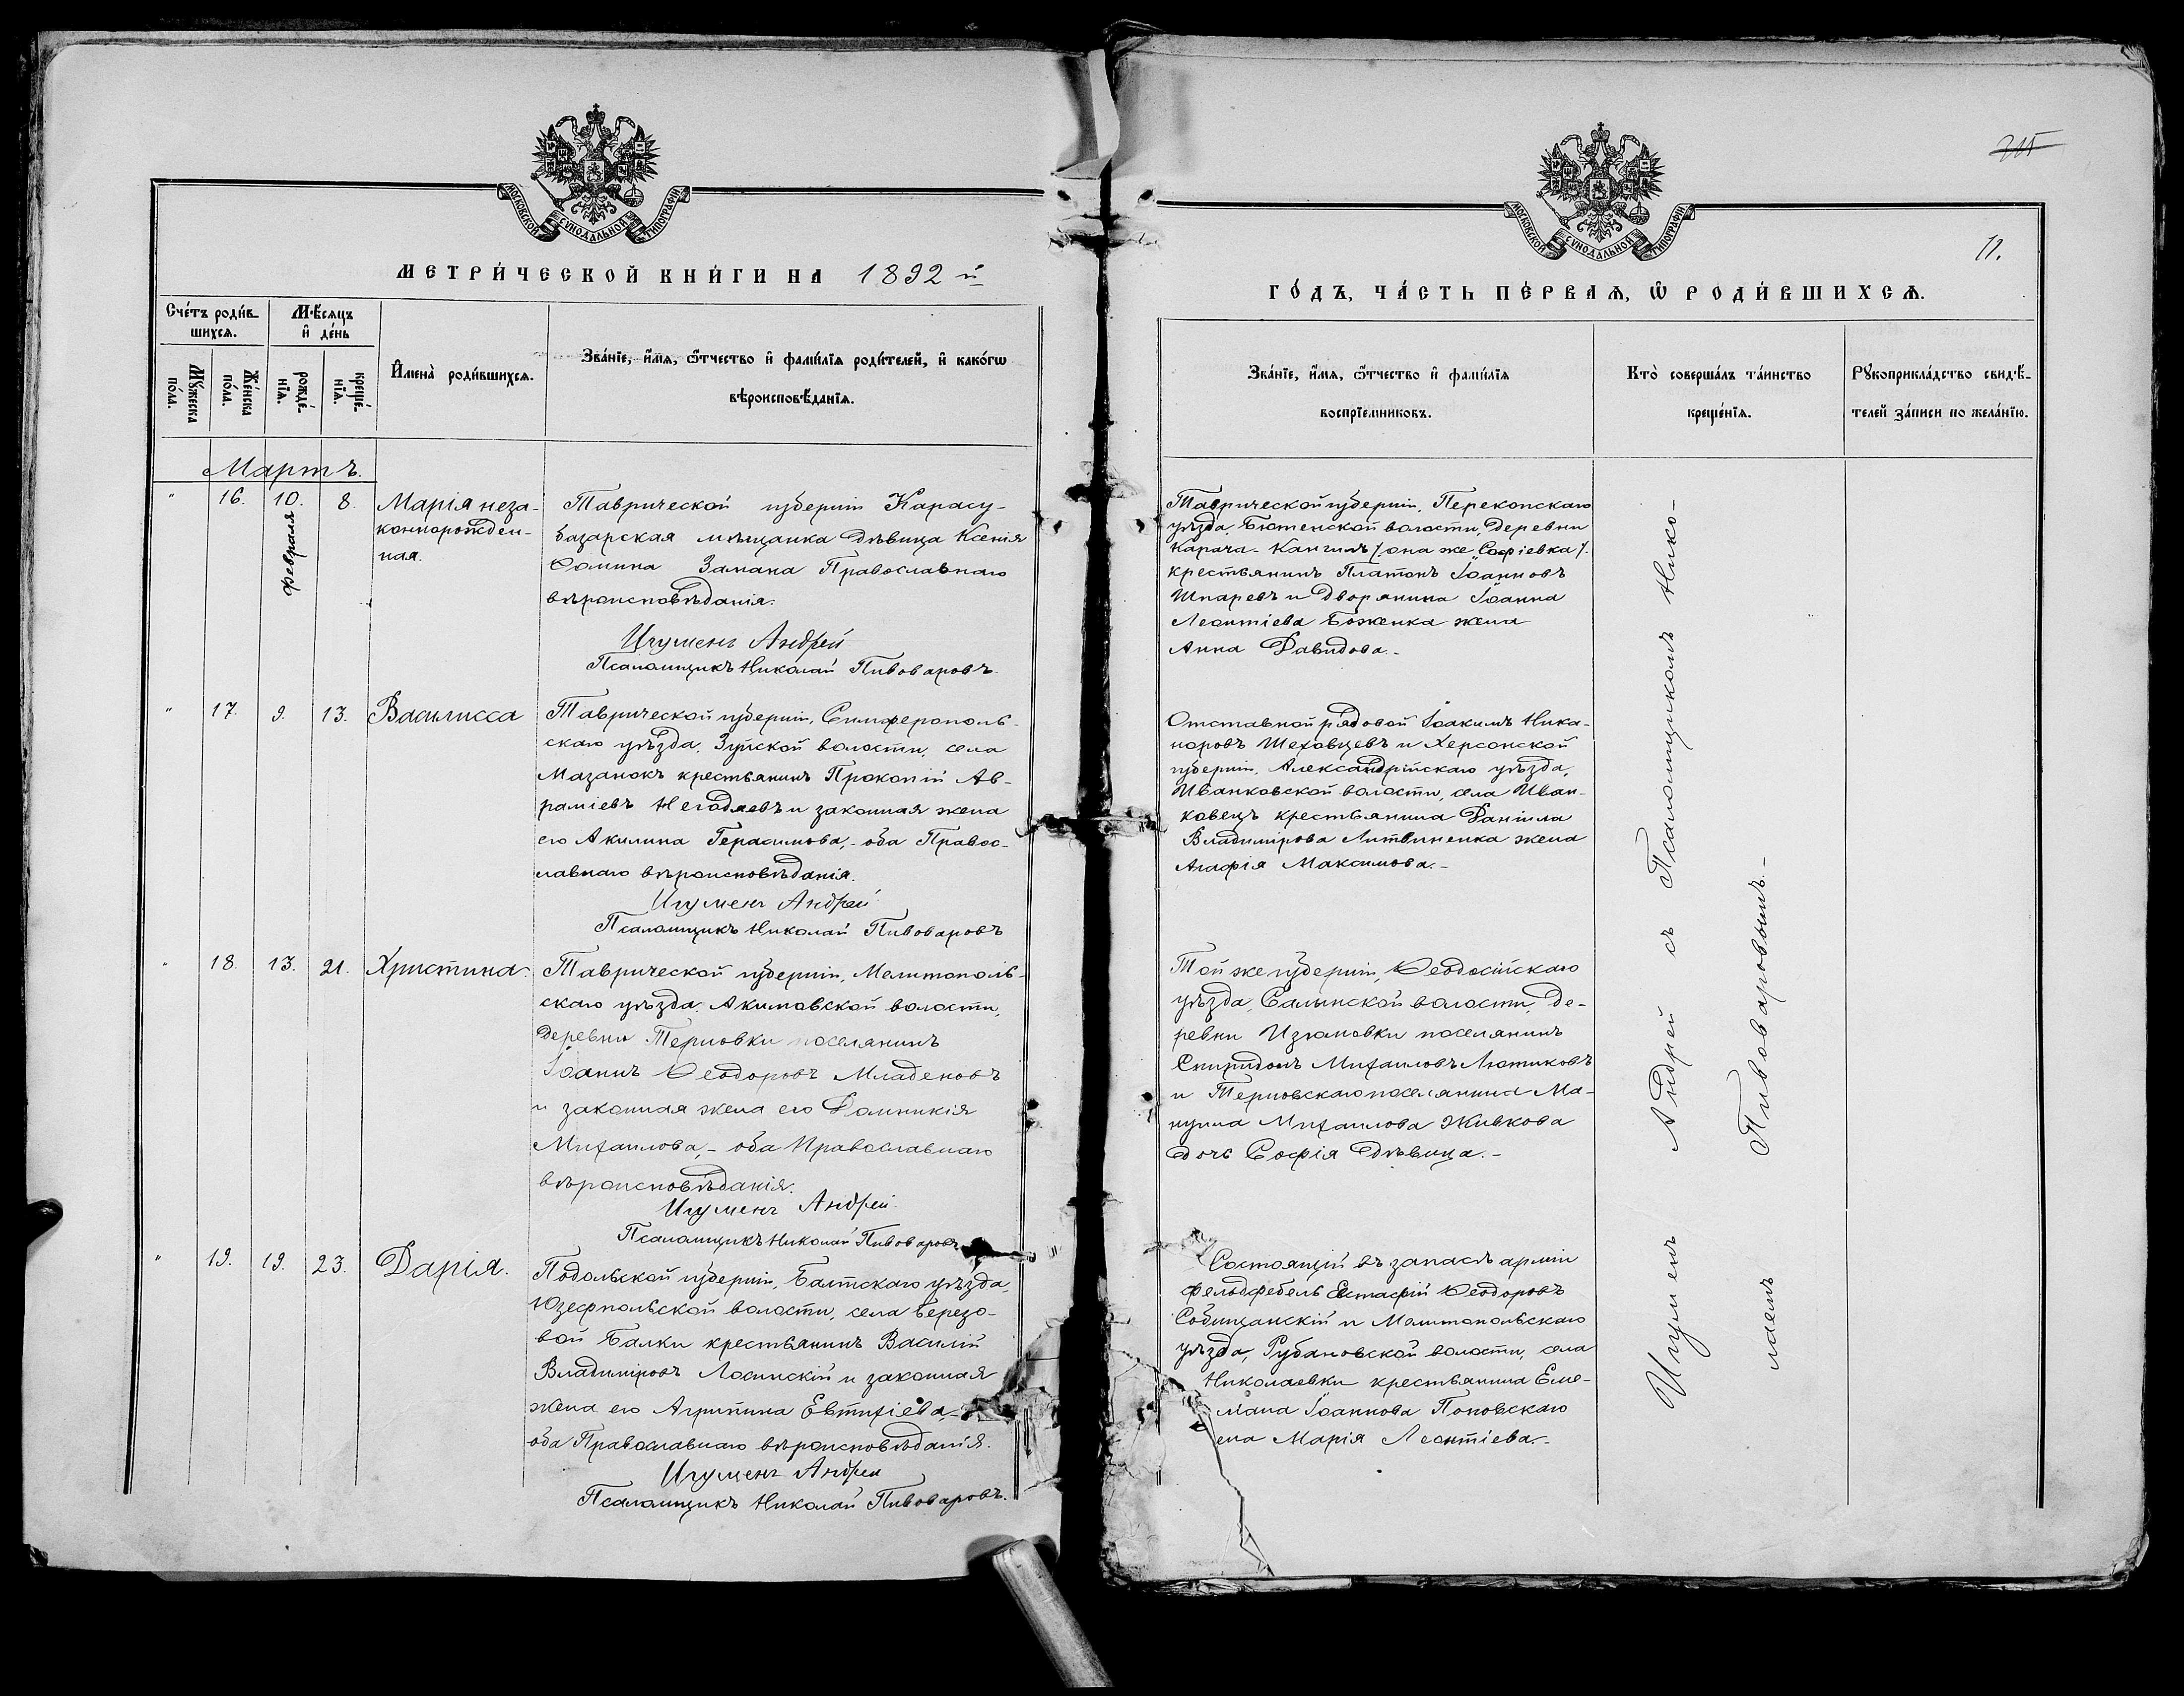 МОСКОВСКОЙ СѴНОДАЛЬНОЙ ТИПОГРАФІИ
МЕТРИ́ЧЕСКОЙ КНИ́ГИ НА 1892 й
Сче́тъ роди́в-
шихсѧ.
Мѣ́сѧцъ
и҆ де́нь
Мꙋ́жеска
по́ла.
Же́нска
по́ла.
рожде́-
нїѧ.
креще́-
нїѧ.
И҆мена̀ роди́вшихсѧ.
Зва́нїе, и҆́мѧ, ѻ҆́тчество и҆ фами́лїѧ роди́телей, и҆ како́гѡ
вѣроисповѣ́данїѧ.
Мартъ.
" 16. 10. 8.
февраля
Марія неза-
коннорожден-
ная.
Таврической губерніи Карасу-
базарская мѣщанка дѣвица Ксенія
Ѳомина Замана Православнаго
вѣроисповѣданія.
Игуменъ Андрей
Псаломщикъ Николай Пивоваровъ.
" 17. 9. 13. Василисса
Таврической губерніи, Симферополь-
скаго уѣзда, Зуйской волости, села
Мазанокъ крестьянинъ Прокопій Ав-
раміевъ Негодяевъ и законная жена
его Акилина Герасимова,- оба Правос-
лавнаго вѣроисповѣданія.
Игуменъ Андрей
Псаломщикъ Николай Пивоваровъ
" 18. 13. 21. Христина.
Таврической губерніи, Мелитополь-
скаго уѣзда, Акимовской волости,
деревни Терновки поселянинъ
Іоаннъ Ѳеодоровъ Младеновъ
и законная жена его Домникія
Михаилова,- оба Православнаго
вѣроисповѣданія.
Игуменъ Андрей
Псаломщикъ Николай Пивоваровъ
" 19. 19. 23. Дарія.
Подольской губерніи, Балтскаго уѣзда,
Юзефпольской волости, села Березо-
вой Балки крестьянинъ Василій
Владиміровъ Лосинскій и законная
жена его Агрипина Евтихіева,-
оба Православнаго вѣроисповѣданія.
Игуменъ Андрей
Псаломщикъ Николай Пивоваровъ.
МОСКОВСКОЙ СѴНОДАЛЬНОЙ ТИПОГРАФІИ
11.
ГО́ДЪ, ЧА́СТЬ ПЕ́РВАѦ, Ѡ҆ РОДИ́ВШИХСѦ.
Зва́нїе, и҆́мѧ, ѻ҆́тчество и҆ фами́лїѧ
воспрїе́мниковъ.
Кто̀ соверша́лъ та́инство
креще́нїѧ.
Рꙋкоприкла́дство свидѣ́-
телей за́писи по жела́нїю.
Таврической губерніи, Перекопскаго
уѣзда, Бютенской волости, деревни
Карача-Кангилъ /она же "Софіевка/.
крестьянинъ Платонъ Іоанновъ
Шпаревъ и дворянина Іоанна
Леонтіева Боженка жена
Анна Давидова.-
Отставной рядовой Іоакимъ Ника-
норовъ Шеховцевъ и Херсонской
губерніи, Александрійскаго уѣзда,
Иванковской волости, села Иван-
ковецъ крестьянина Даніила
Владимірова Литвиненка жена
Агафія Максимова.-
Той же губерніи, Ѳеодосійскаго
уѣзда, Салынской волости, де-
ревни Изюмовки поселянинъ
Спиридонъ Михаиловъ Лютиковъ
и Терновскаго поселянина Ма-
нуила Михаилова Живкова
дочь Софія дѣвица.-
Состоящій въ запасѣ арміи
фельдфебель Евстафій Ѳеодоровъ
Собищанскій и Мелитопольскаго
уѣзда, Рубановской волости, села
Николаевки крестьянина Еме-
ліана Іоаннова Поповскаго
ена Марія Леонтіева.-
Игуменъ Андрей съ Псаломщикомъ Нико-
лаемъ Пивоваровымъ.-